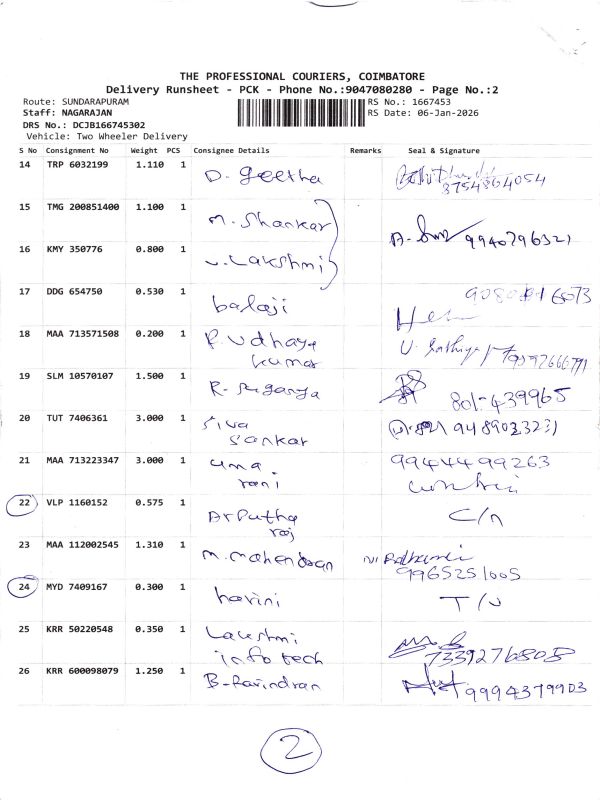 THE PROFESSIONAL COURIERS, COIMBATORE
Delivery Runsheet - PCK - Phone No.:9047080280 - Page No.:2
Route: SUNDARAPURAM
RS No.: 1667453
Staff: NAGARAJAN
RS Date: 06-Jan-2026
DRS No.: DCJB166745302
Vehicle: Two Wheeler Delivery
S No Consignment No Weight PCS Consignee Details Remarks Seal & Signature
14 TRP 6032199 1.110 1 D. geetha
8754864054
15 TMG 200851400 1.100 1 M. Shankar
9940796321
16 KMY 350776 0.800 1 V. Lakshmi
17 DDG 654750 0.530 1 balaji
18 MAA 713571508 0.200 1 P. Udhaya
kumar
19 SLM 10570107 1.500 1 R. Suganya
801-439965
20 TUT 7406361 3.000 1 Siva
Sankar
21 MAA 713223347 3.000 1 uma
rani
9944499263
22 VLP 1160152 0.575 1 Arputha
raj
C/n
23 MAA 112002545 1.310 1 M. Mahendran
9965251005
24 MYD 7409167 0.300 1 harini
25 KRR 50220548 0.350 1 Lakshmi
info tech
7339276808
26 KRR 600098079 1.250 1 B. Ravindran
9994379903
2